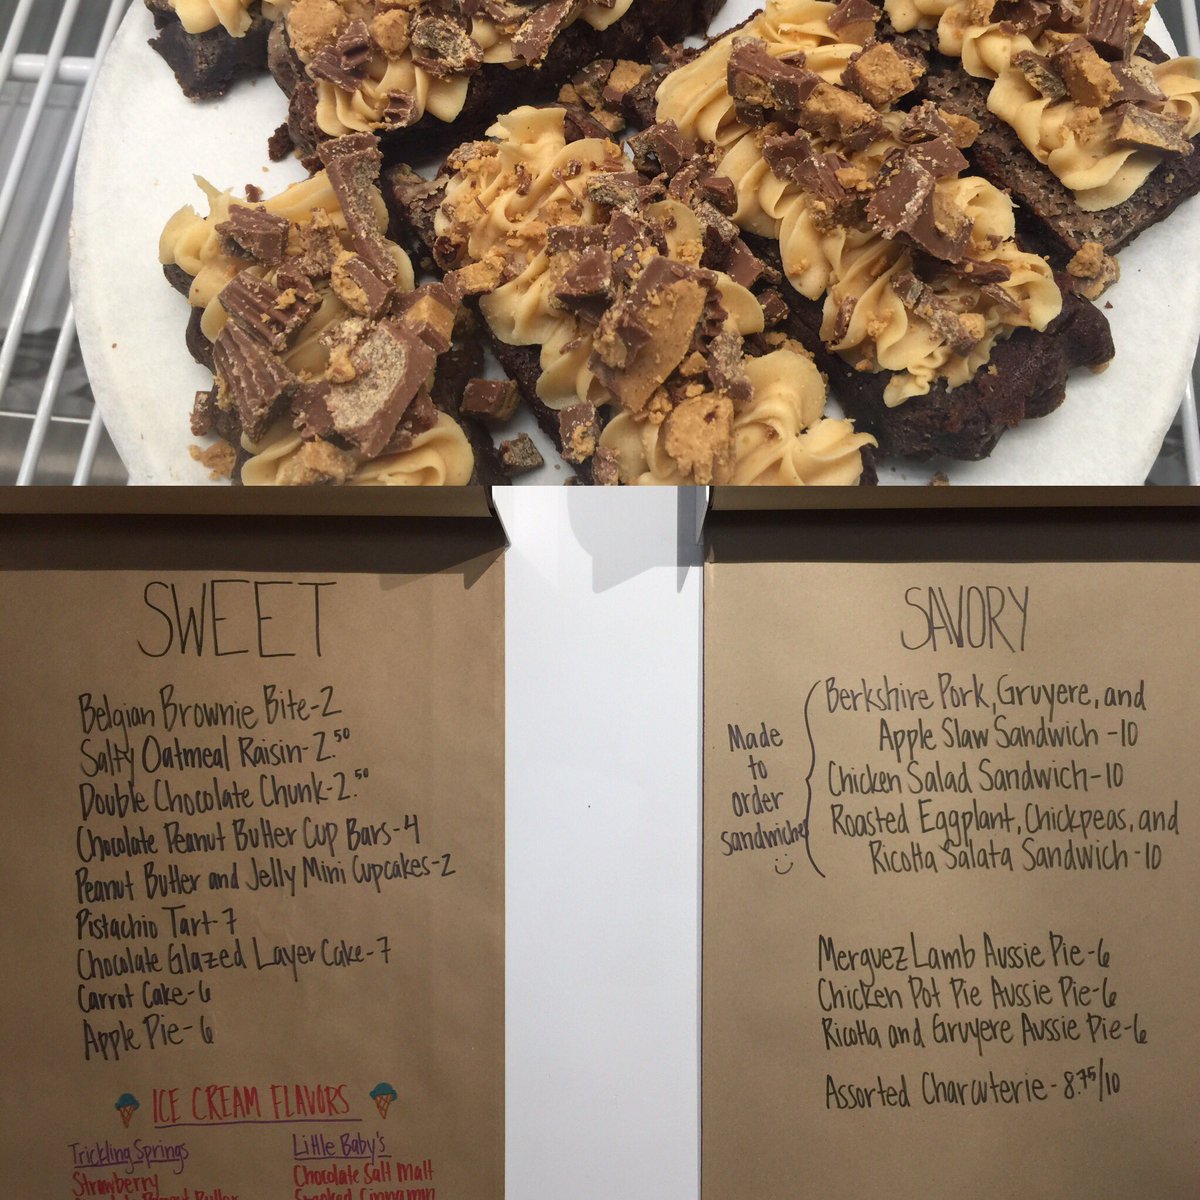 SWEET
Belgian Brownie Bite-2
Salty Oatmeal Raisin-2.50
Double Chocolate Chunk-2.50
Chocolate Peanut Butter Cup Bars-4
Peanut Butter and Jelly Mini Cupcakes-2
Pistachio Tart-7
Chocolate Glazed Layer Cake-7
Carrot Cake-6
Apple Pie-6
ICE CREAM FLAVORS
Trickling Springs
Strawberry
Peanut Butter
Little Baby's
Chocolate Salt Malt
Smoked Cinnamon
SAVORY
Made
to
order
sandwiches
Berkshire Pork, Gruyere, and
Apple Slaw Sandwich-10
Chicken Salad Sandwich-10
Roasted Eggplant, Chickpeas, and
Ricotta Salata Sandwich-10
Merguez Lamb Aussie Pie-6
Chicken Pot Pie Aussie Pie-6
Ricotta and Gruyere Aussie Pie-6
Assorted Charcuterie-8.75/10